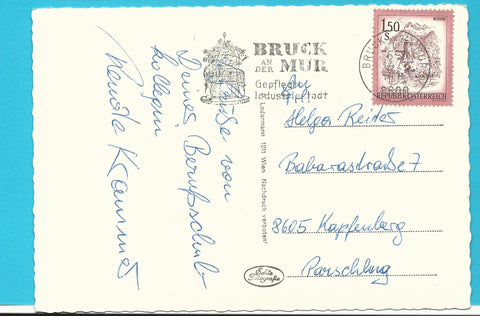 Grüße von
Deiner Berufsschul
kollegin
Renate Krammer
BRUCK
AN DER MUR
Gepflegte
Industriestadt
BRUCK
8600
1.50
REPUBLIK ÖSTERREICH
Ledermann 1011 Wien Nachdruck verboten
Helga Reiter
Babarastraße 7
8605 Kapfenberg
Parschlug
Echte
Fotografie